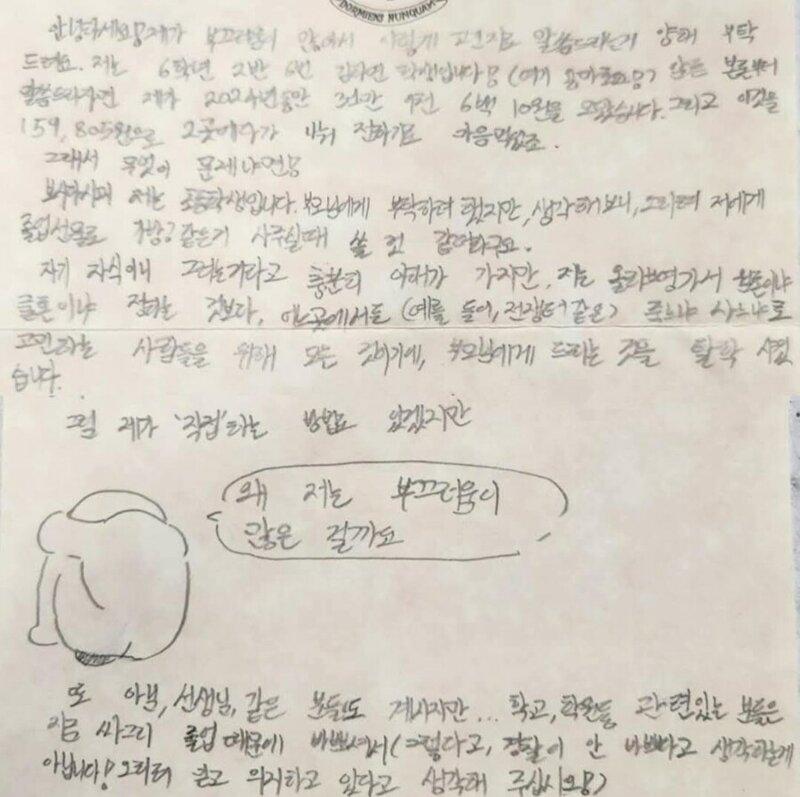 DORMIENS NUNQUAM
안녕하세요 제가 부끄러움이 많아서 이렇게 편지로 말씀드리는거 양해 부탁
드려요. 저는 6학년 2반 6번 학생입니다 (여기 않은 본론부터
말씀드리자면 제가 2024년동안 3천 6백 10원을 모았습니다. 그리고 이것을
159,805원으로 2곳에다가 나눠 전하기로 마음먹었죠.
그래서 무엇이 문제냐면
보시다시피 저는 초등학생입니다. 부모님에게 부탁하려 했지만, 생각해보니, 그러며 저에게
졸업선물로 가방 같은거 사주실때 쓸 것 같더라구요.
자기 자식이니 그러는거라고 충분히 이해가 가지만, 저는 올리브영가서 웜톤이냐
쿨톤이냐 정하는 것보다, 먼 곳에서든 (예를 들어, 전쟁터 같은) 죽느냐 사느냐로
고민하는 사람들을 위해 모은 것이기에, 부모님에게 드리는 것을 탈락 시켰
습니다.
그럼 제가 '직접'하는 방법도 있겠지만
왜 저는 부끄러움이
많은 걸까요
또 아빠, 선생님, 같은 분들도 계시지만... 학교, 학원등 관련있는 분들은
지금 싸그리 졸업 때문에 바쁘셔서 (그렇다고, 경찰이 안 바쁘다고 생각하는게
아닙니다! 그러려 믿고 의지하고 있다고 생각해 주십시오)